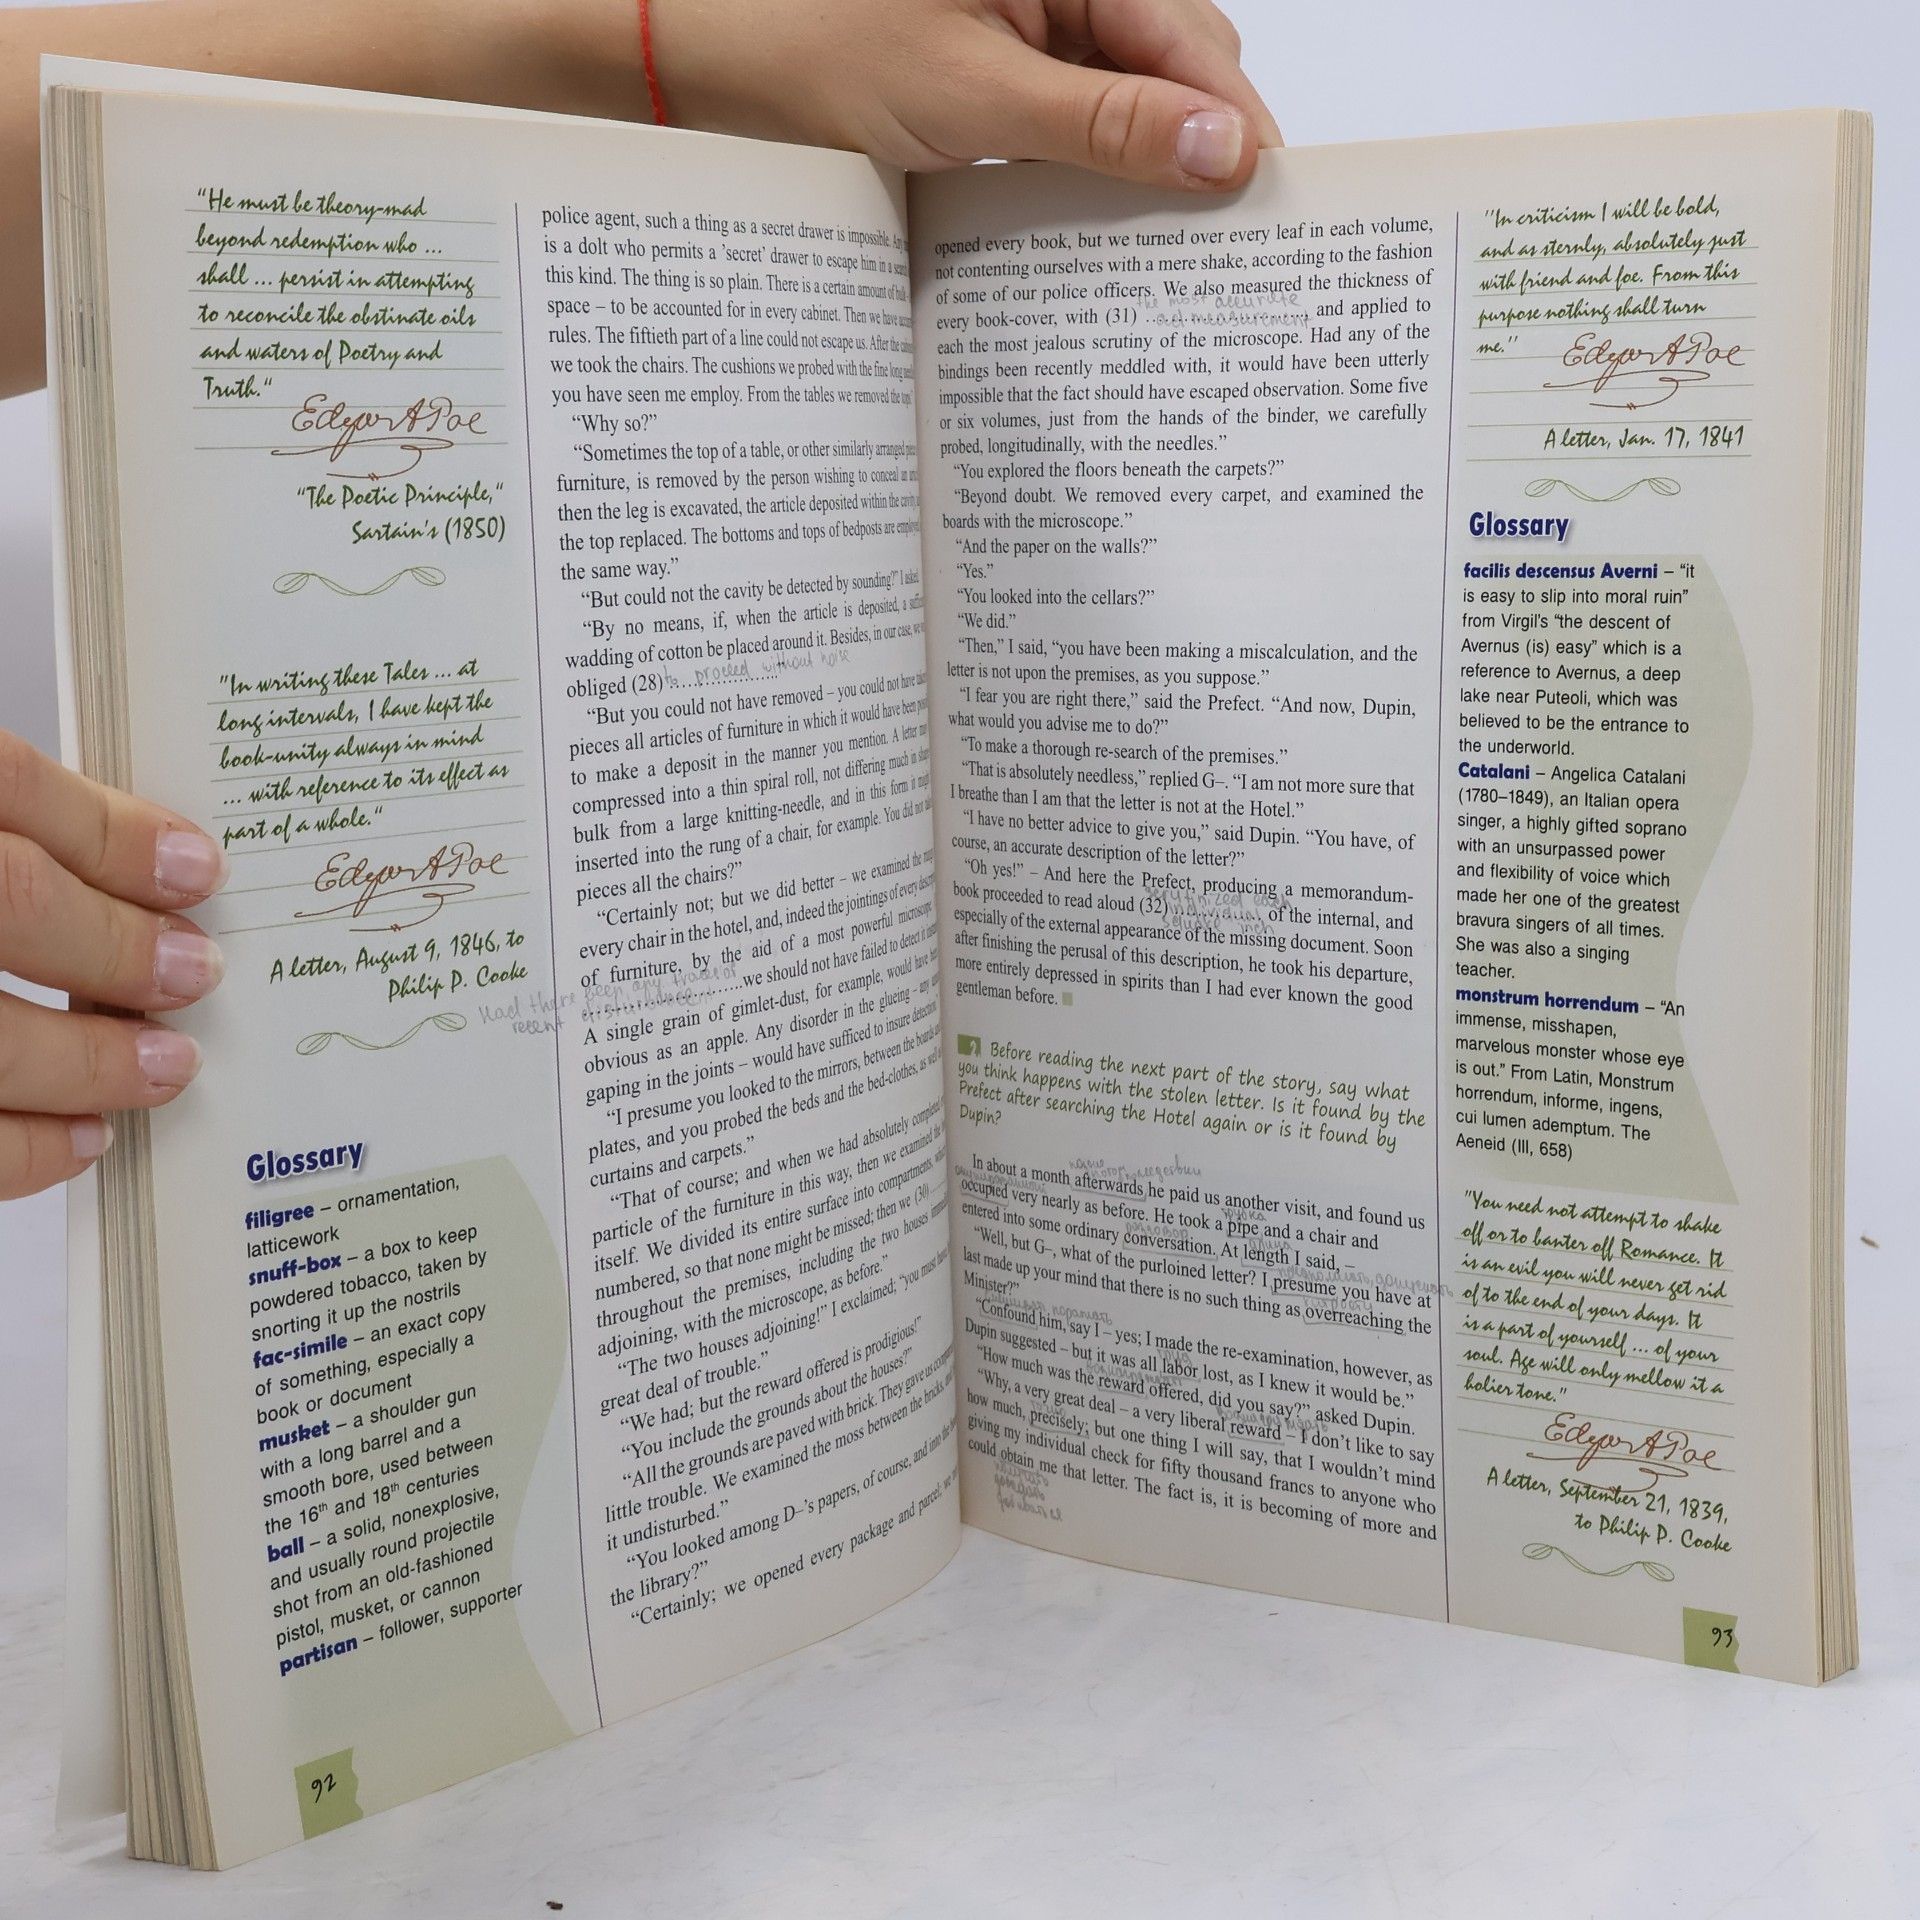 "He must be theory-mad
beyond redemption who ...
shall ... persist in attempting
to reconcile the obstinate oils
and waters of Poetry and
Truth."
Edgar A Poe
"The Poetic Principle,"
Sartain's (1850)
"In writing these Tales ... at
long intervals, I have kept the
book-unity always in mind
... with reference to its effect as
part of a whole."
Edgar A Poe
A letter, August 9, 1846, to
Philip P. Cooke
Glossary
filigree – ornamentation,
latticework
snuff-box – a box to keep
powdered tobacco, taken by
snorting it up the nostrils
fac-simile – an exact copy
of something, especially a
book or document
musket – a shoulder gun
with a long barrel and a
smooth bore, used between
the 16th and 18th centuries
ball – a solid, nonexplosive,
and usually round projectile
shot from an old-fashioned
pistol, musket, or cannon
partisan – follower, supporter
92
police agent, such a thing as a secret drawer is impossible. Any
is a dolt who permits a 'secret' drawer to escape him in a
this kind. The thing is so plain. There is a certain amount of
space – to be accounted for in every cabinet. Then we have
rules. The fiftieth part of a line could not escape us. After the
we took the chairs. The cushions we probed with the fine long
you have seen me employ. From the tables we removed the
“Why so?”
“Sometimes the top of a table, or other similarly arranged
furniture, is removed by the person wishing to conceal an
then the leg is excavated, the article deposited within the
the top replaced. The bottoms and tops of bedposts are
the same way.”
“But could not the cavity be detected by sounding?” I
“By no means, if, when the article is deposited, a
wadding of cotton be placed around it. Besides, in our case,
to proceed without noise
obliged (28)....................
“But you could not have removed – you could not have
pieces all articles of furniture in which it would have been
to make a deposit in the manner you mention. A letter
compressed into a thin spiral roll, not differing much in
bulk from a large knitting-needle, and in this form it
inserted into the rung of a chair, for example. You did not
pieces all the chairs?”
“Certainly not; but we did better – we examined the
every chair in the hotel, and, indeed the jointings of every
of furniture, by the aid of a most powerful microscope
Had there been any traces of
recent disturbance
....................we should not have failed to detect it
A single grain of gimlet-dust, for example, would have
obvious as an apple. Any disorder in the glueing – any
gaping in the joints – would have sufficed to insure detection.
“I presume you looked to the mirrors, between the boards
plates, and you probed the beds and the bed-clothes, as well
curtains and carpets.”
“That of course; and when we had absolutely completed
particle of the furniture in this way, then we examined the
itself. We divided its entire surface into compartments,
numbered, so that none might be missed; then we (30)
throughout the premises, including the two houses
adjoining, with the microscope, as before.”
“The two houses adjoining!” I exclaimed; “you must have
great deal of trouble.”
“We had; but the reward offered is prodigious!”
“You include the grounds about the houses?”
“All the grounds are paved with brick. They gave us
little trouble. We examined the moss between the bricks,
it undisturbed.”
“You looked among D–'s papers, of course, and into the
the library?”
“Certainly; we opened every package and parcel; we
opened every book, but we turned over every leaf in each volume,
not contenting ourselves with a mere shake, according to the fashion
of some of our police officers. We also measured the thickness of
the most accurate
every book-cover, with (31) ...................., and applied to
each the most jealous scrutiny of the microscope. Had any of the
bindings been recently meddled with, it would have been utterly
impossible that the fact should have escaped observation. Some five
or six volumes, just from the hands of the binder, we carefully
probed, longitudinally, with the needles.”
“You explored the floors beneath the carpets?”
“Beyond doubt. We removed every carpet, and examined the
boards with the microscope.”
“And the paper on the walls?”
“Yes.”
“You looked into the cellars?”
“We did.”
“Then,” I said, “you have been making a miscalculation, and the
letter is not upon the premises, as you suppose.”
“I fear you are right there,” said the Prefect. “And now, Dupin,
what would you advise me to do?”
“To make a thorough re-search of the premises.”
“That is absolutely needless,” replied G–. “I am not more sure that
I breathe than I am that the letter is not at the Hotel.”
“I have no better advice to give you,” said Dupin. “You have, of
course, an accurate description of the letter?”
“Oh yes!” – And here the Prefect, producing a memorandum-
book proceeded to read aloud (32).................... of the internal, and
especially of the external appearance of the missing document. Soon
after finishing the perusal of this description, he took his departure,
more entirely depressed in spirits than I had ever known the good
gentleman before.
Before reading the next part of the story, say what
you think happens with the stolen letter. Is it found by the
Prefect after searching the Hotel again or is it found by
Dupin?
In about a month afterwards he paid us another visit, and found us
occupied very nearly as before. He took a pipe and a chair and
entered into some ordinary conversation. At length I said, –
“Well, but G–, what of the purloined letter? I presume you have at
last made up your mind that there is no such thing as overreaching the
Minister?”
“Confound him, say I – yes; I made the re-examination, however, as
Dupin suggested – but it was all labor lost, as I knew it would be.”
“How much was the reward offered, did you say?” asked Dupin.
“Why, a very great deal – a very liberal reward – I don't like to say
how much, precisely; but one thing I will say, that I wouldn't mind
giving my individual check for fifty thousand francs to anyone who
could obtain me that letter. The fact is, it is becoming of more and
"In criticism I will be bold,
and as sternly, absolutely just
with friend and foe. From this
purpose nothing shall turn
me."
Edgar A Poe
A letter, Jan. 17, 1841
Glossary
facilis descensus Averni – “it
is easy to slip into moral ruin”
from Virgil's “the descent of
Avernus (is) easy” which is a
reference to Avernus, a deep
lake near Puteoli, which was
believed to be the entrance to
the underworld.
Catalani – Angelica Catalani
(1780–1849), an Italian opera
singer, a highly gifted soprano
with an unsurpassed power
and flexibility of voice which
made her one of the greatest
bravura singers of all times.
She was also a singing
teacher.
monstrum horrendum – “An
immense, misshapen,
marvelous monster whose eye
is out.” From Latin, Monstrum
horrendum, informe, ingens,
cui lumen ademptum. The
Aeneid (III, 658)
"You need not attempt to shake
off or to banter off Romance. It
is an evil you will never get rid
of to the end of your days. It
is a part of yourself ... of your
soul. Age will only mellow it a
holier tone."
Edgar A Poe
A letter, September 21, 1839,
to Philip P. Cooke
93